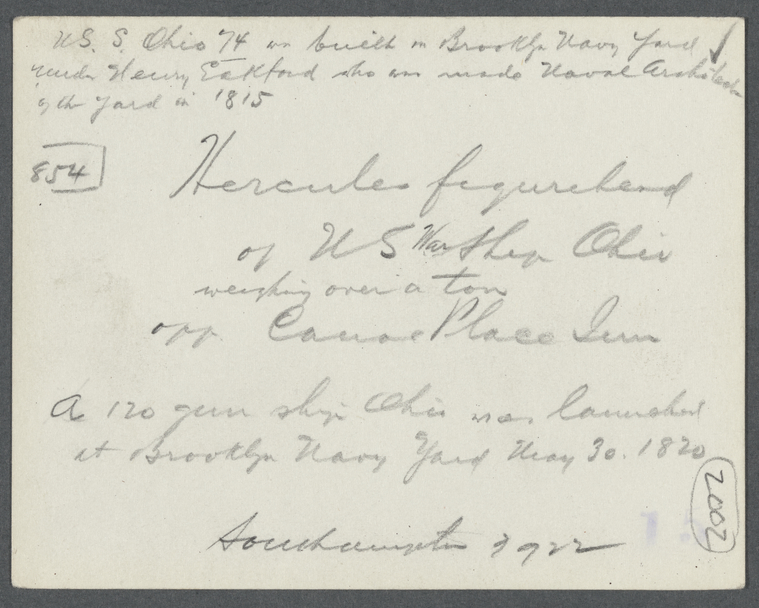 U.S.S. Ohio 74 was built in Brooklyn Navy Yard
under Henry Eakford who was made Naval Architect
of the Yard in 1815
854
Hercules figurehead
of U S War Ship Ohio
weighing over a ton
opp Canoe Place Inn
A 120 gun ship Ohio was launched
at Brooklyn Navy Yard May 30. 1820
2002
Southampton 1922